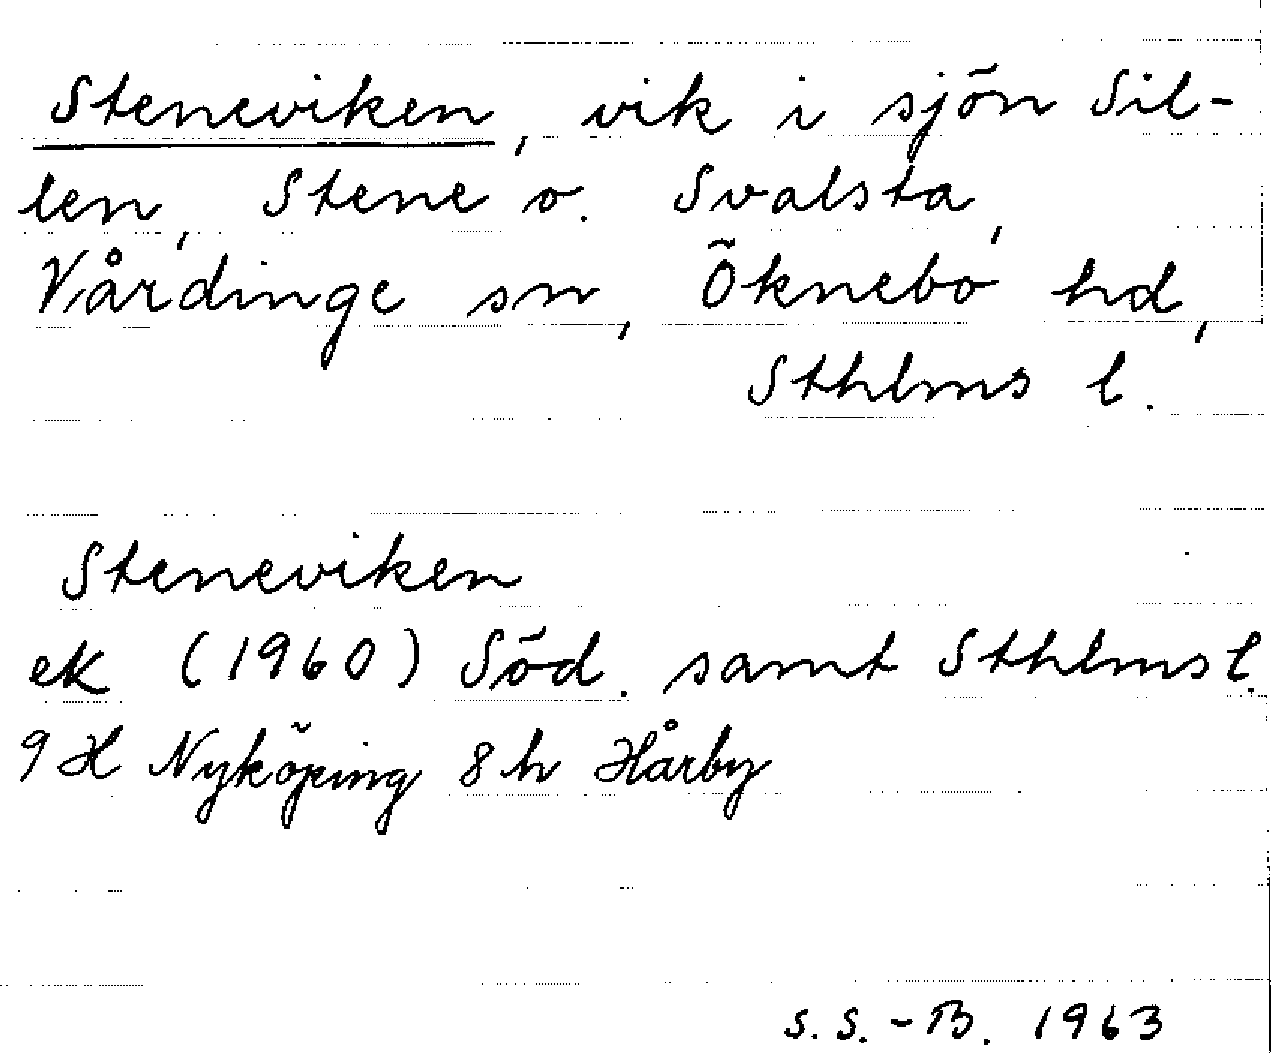 Steneviken, vik i sjön Sil-
len, Stene o. Svalsta,
Vårdinge sn, Öknebo hd,
Sthlms l.
Steneviken
ek (1960) Söd. samt Sthlms l.
9 H Nyköping 8 h Hårby
S. S. - B. 1963